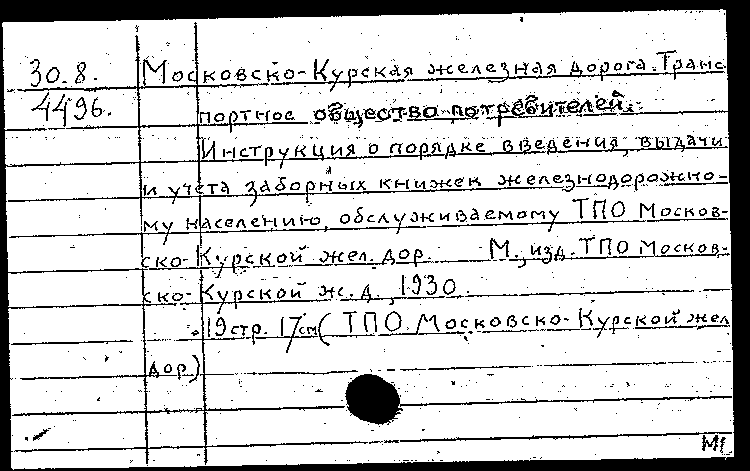 30.8. Московско-Курская железная дорога. Транс
4496. портное общество потребителей.
Инструкция о порядке введения, выдачи
и учета заборных книжек железнодорожно-
му населению, обслуживаемому ТПО Москов-
ско-Курской жел. дор. М., изд. ТПО Москов-
ско-Курской ж. д., 1930.
19 стр. 17 см (ТПО Московско-Курской жел
дор)
М1